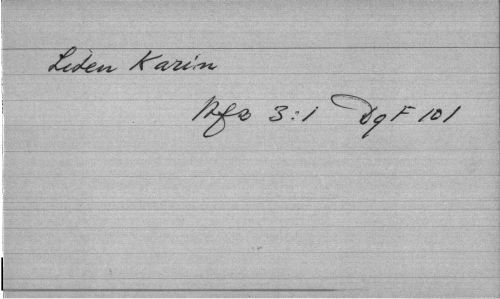 Liten Karin
Afs 3:1 DgF 101